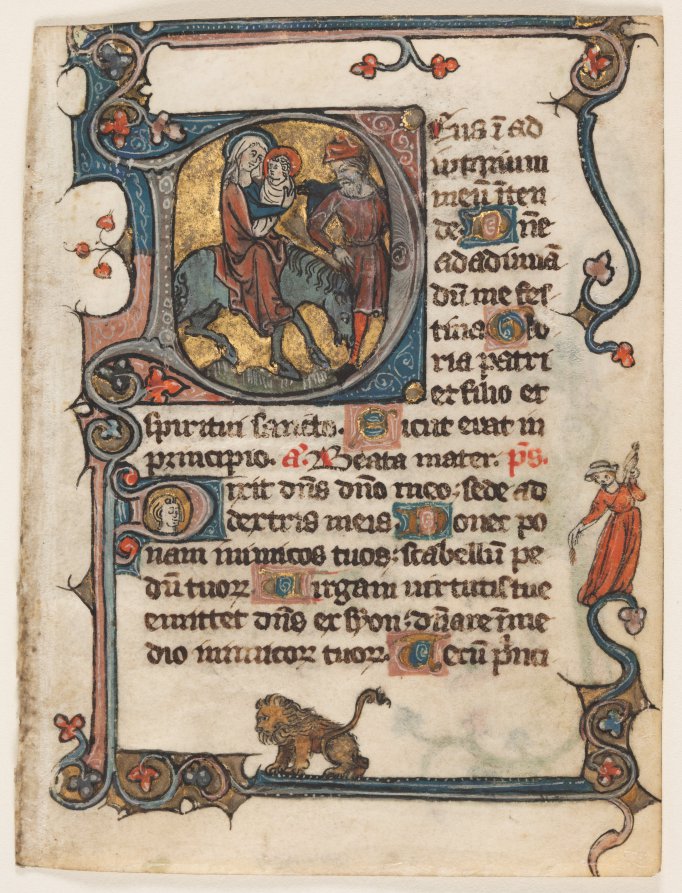 Deus ī ad
iutorium
meū īten
de. Dn̄e
ad adiuuā
dū me fes
tina. Glo
ria patri
et filio et
spiritui sancto. Sicut erat in
principio. a. Beata mater. p̄s.
Dixit dn̄s dn̄o meo: sede ad
dextris meis. Donec po
nam inimicos tuos: scabellū pe
dū tuoꝝ. Virgam uirtutis tue
emittet dn̄s ex syon: dn̄are ī me
dio inimicoꝝ tuoꝝ. Tecū p̄nci